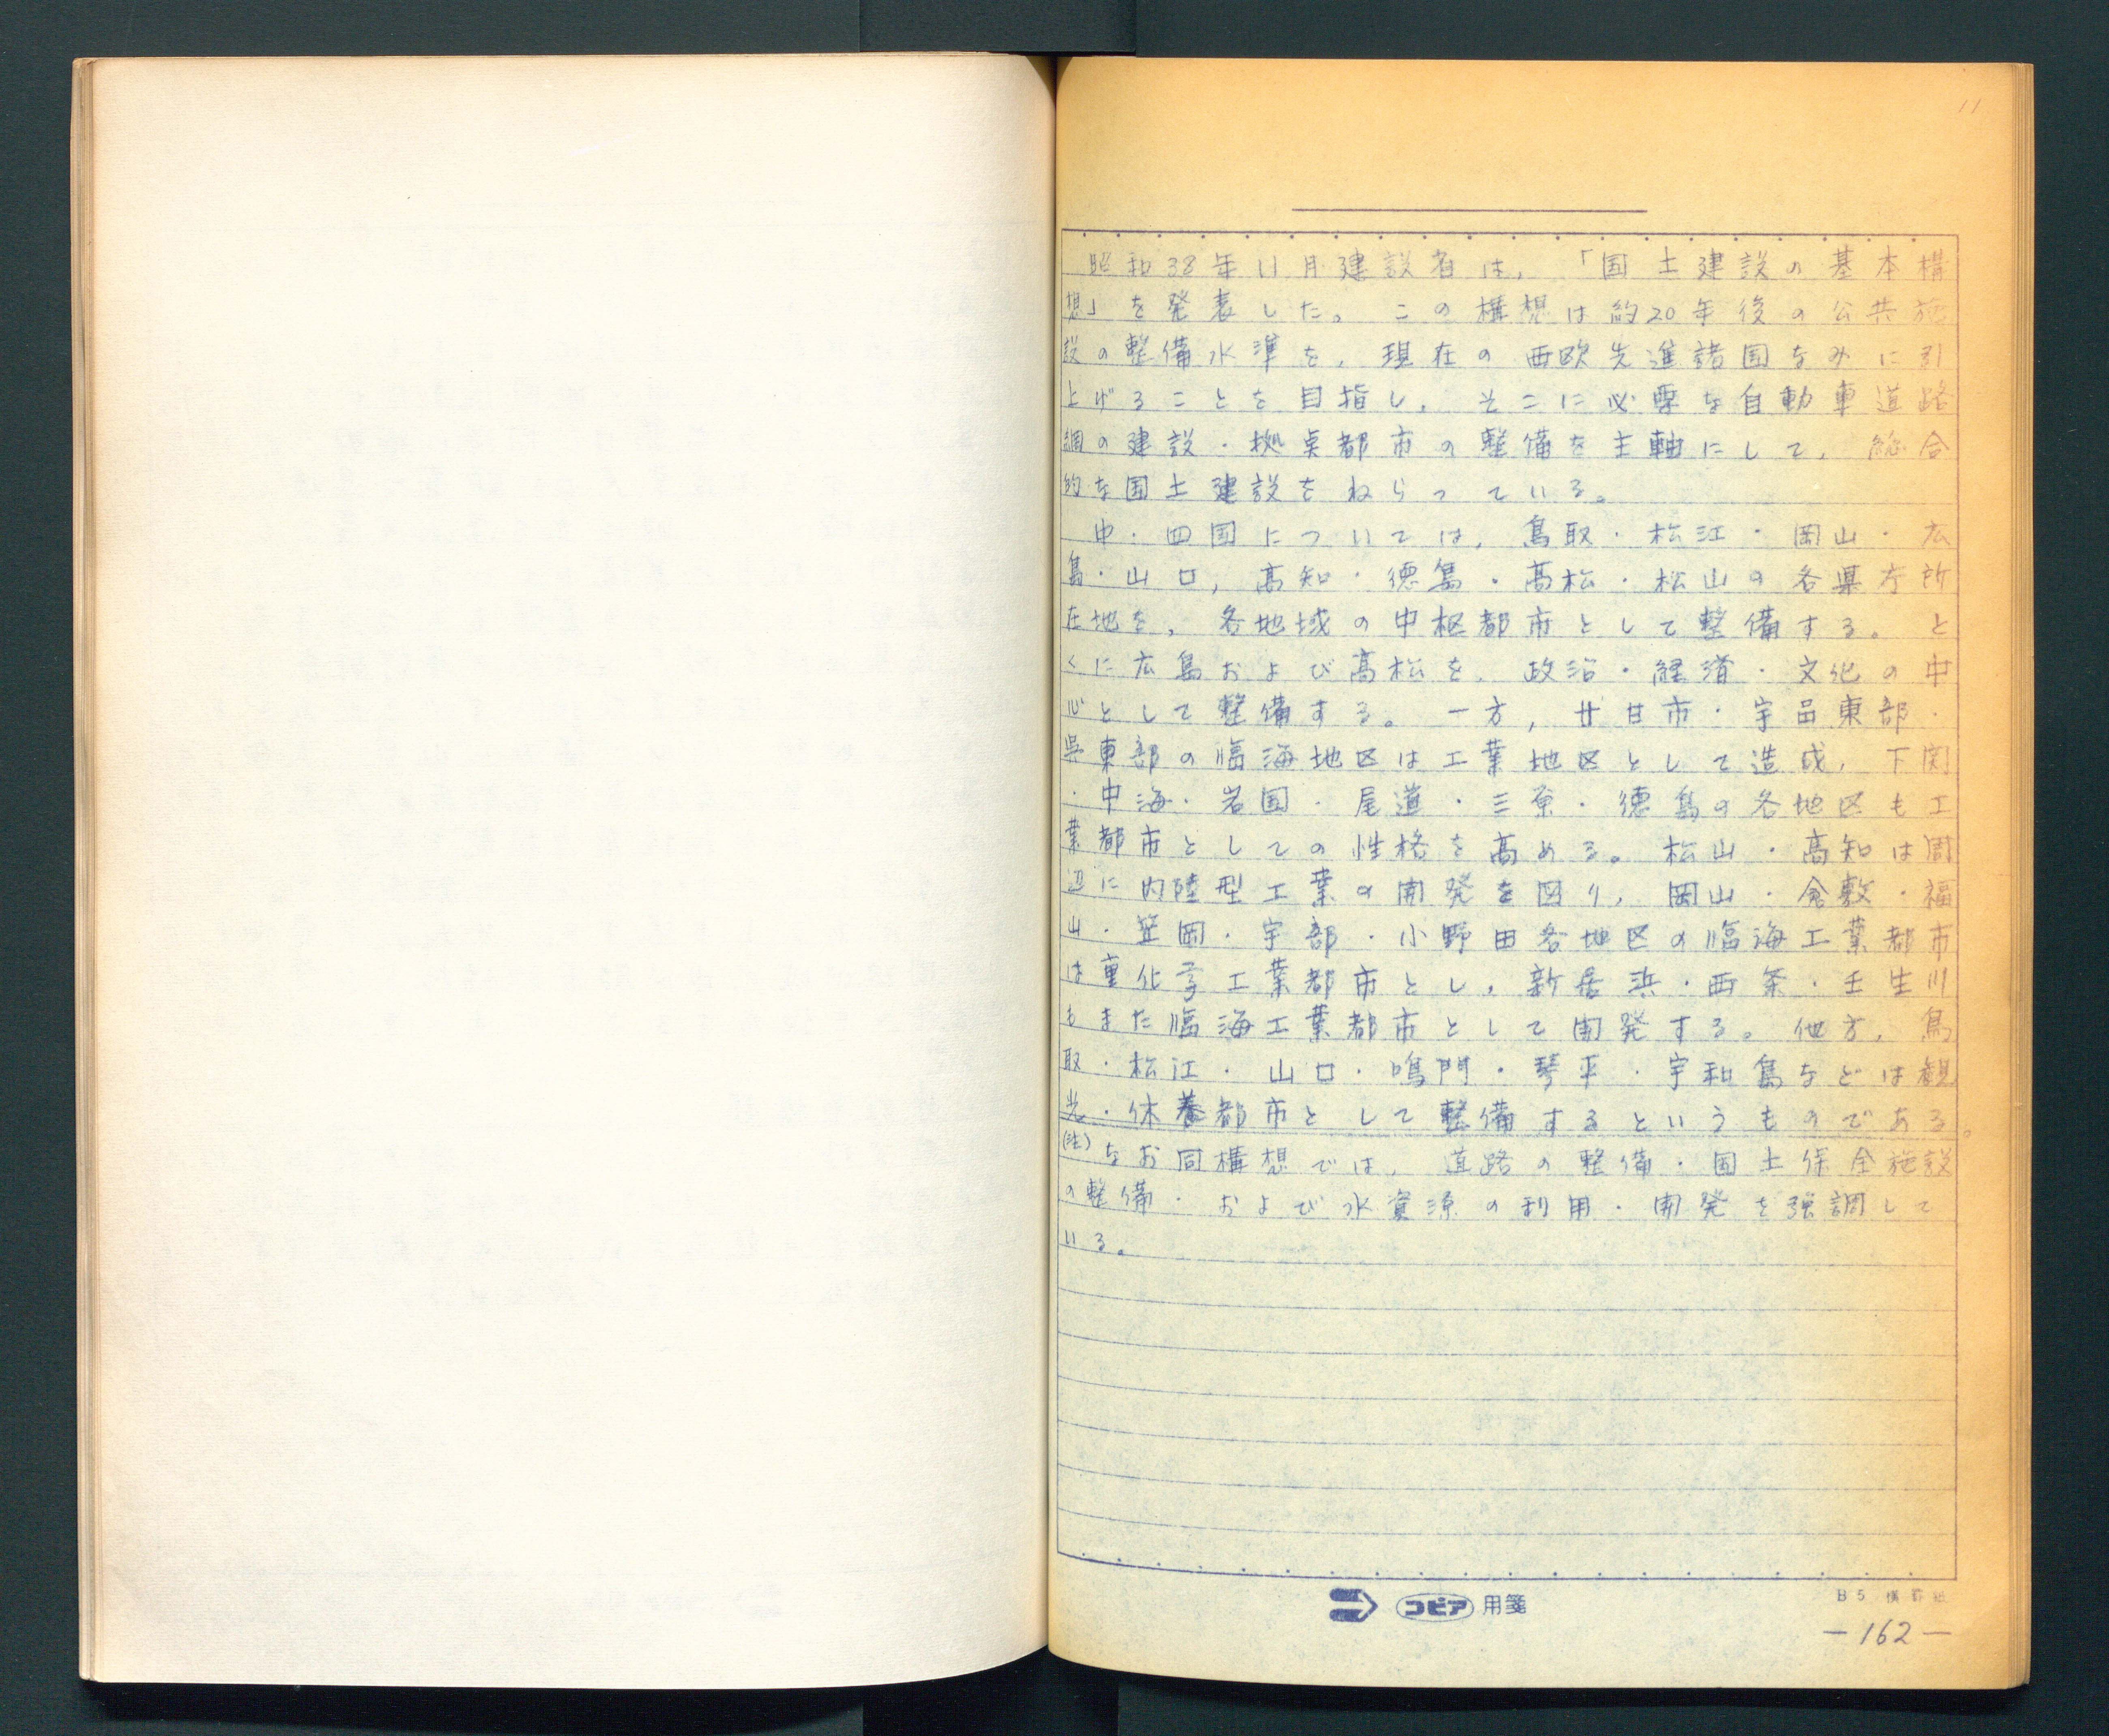 11
昭和38年11月建設省は,「国土建設の基本構
想」を発表した。この構想は約20年後の公共施
設の整備水準を,現在の西欧先進諸国なみに引
上げることを目指し,そこに必要な自動車道路
網の建設・拠点都市の整備を主軸にして,総合
的な国土建設をねらっている。
中・四国については,鳥取・松江・岡山・広
島・山口,高知・徳島・高松・松山の各県庁所
在地を,各地域の中枢都市として整備する。と
くに広島および高松を,政治・経済・文化の中
心として整備する。一方,廿日市・宇品東部・
呉東部の臨海地区は工業地区として造成,下関
・中海・岩国・尾道・三原・徳島の各地区も工
業都市としての性格を高める。松山・高知は周
辺に内陸型工業の開発を図り,岡山・倉敷・福
山・笠岡・宇部・小野田各地区の臨海工業都市
は重化学工業都市とし,新居浜・西条・壬生川
もまた臨海工業都市として開発する。他方,鳥
取・松江・山口・鳴門・琴平・宇和島などは観
光・休養都市として整備するというものである。
(注)なお同構想では,道路の整備・国土保全施設
の整備・および水資源の利用・開発を強調して
いる。
コピア用箋
B5 横罫紙
—162—